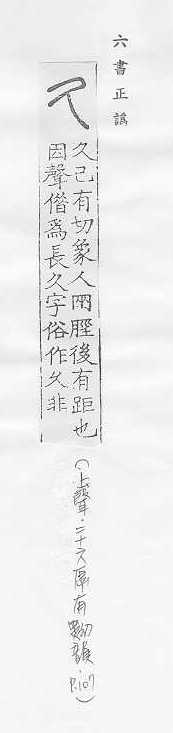 六書正譌
久
久己有切象人㒳脛後有距也
因聲借爲長久字俗作乆非
(上聲.二十六厚有黝韻.P.107)